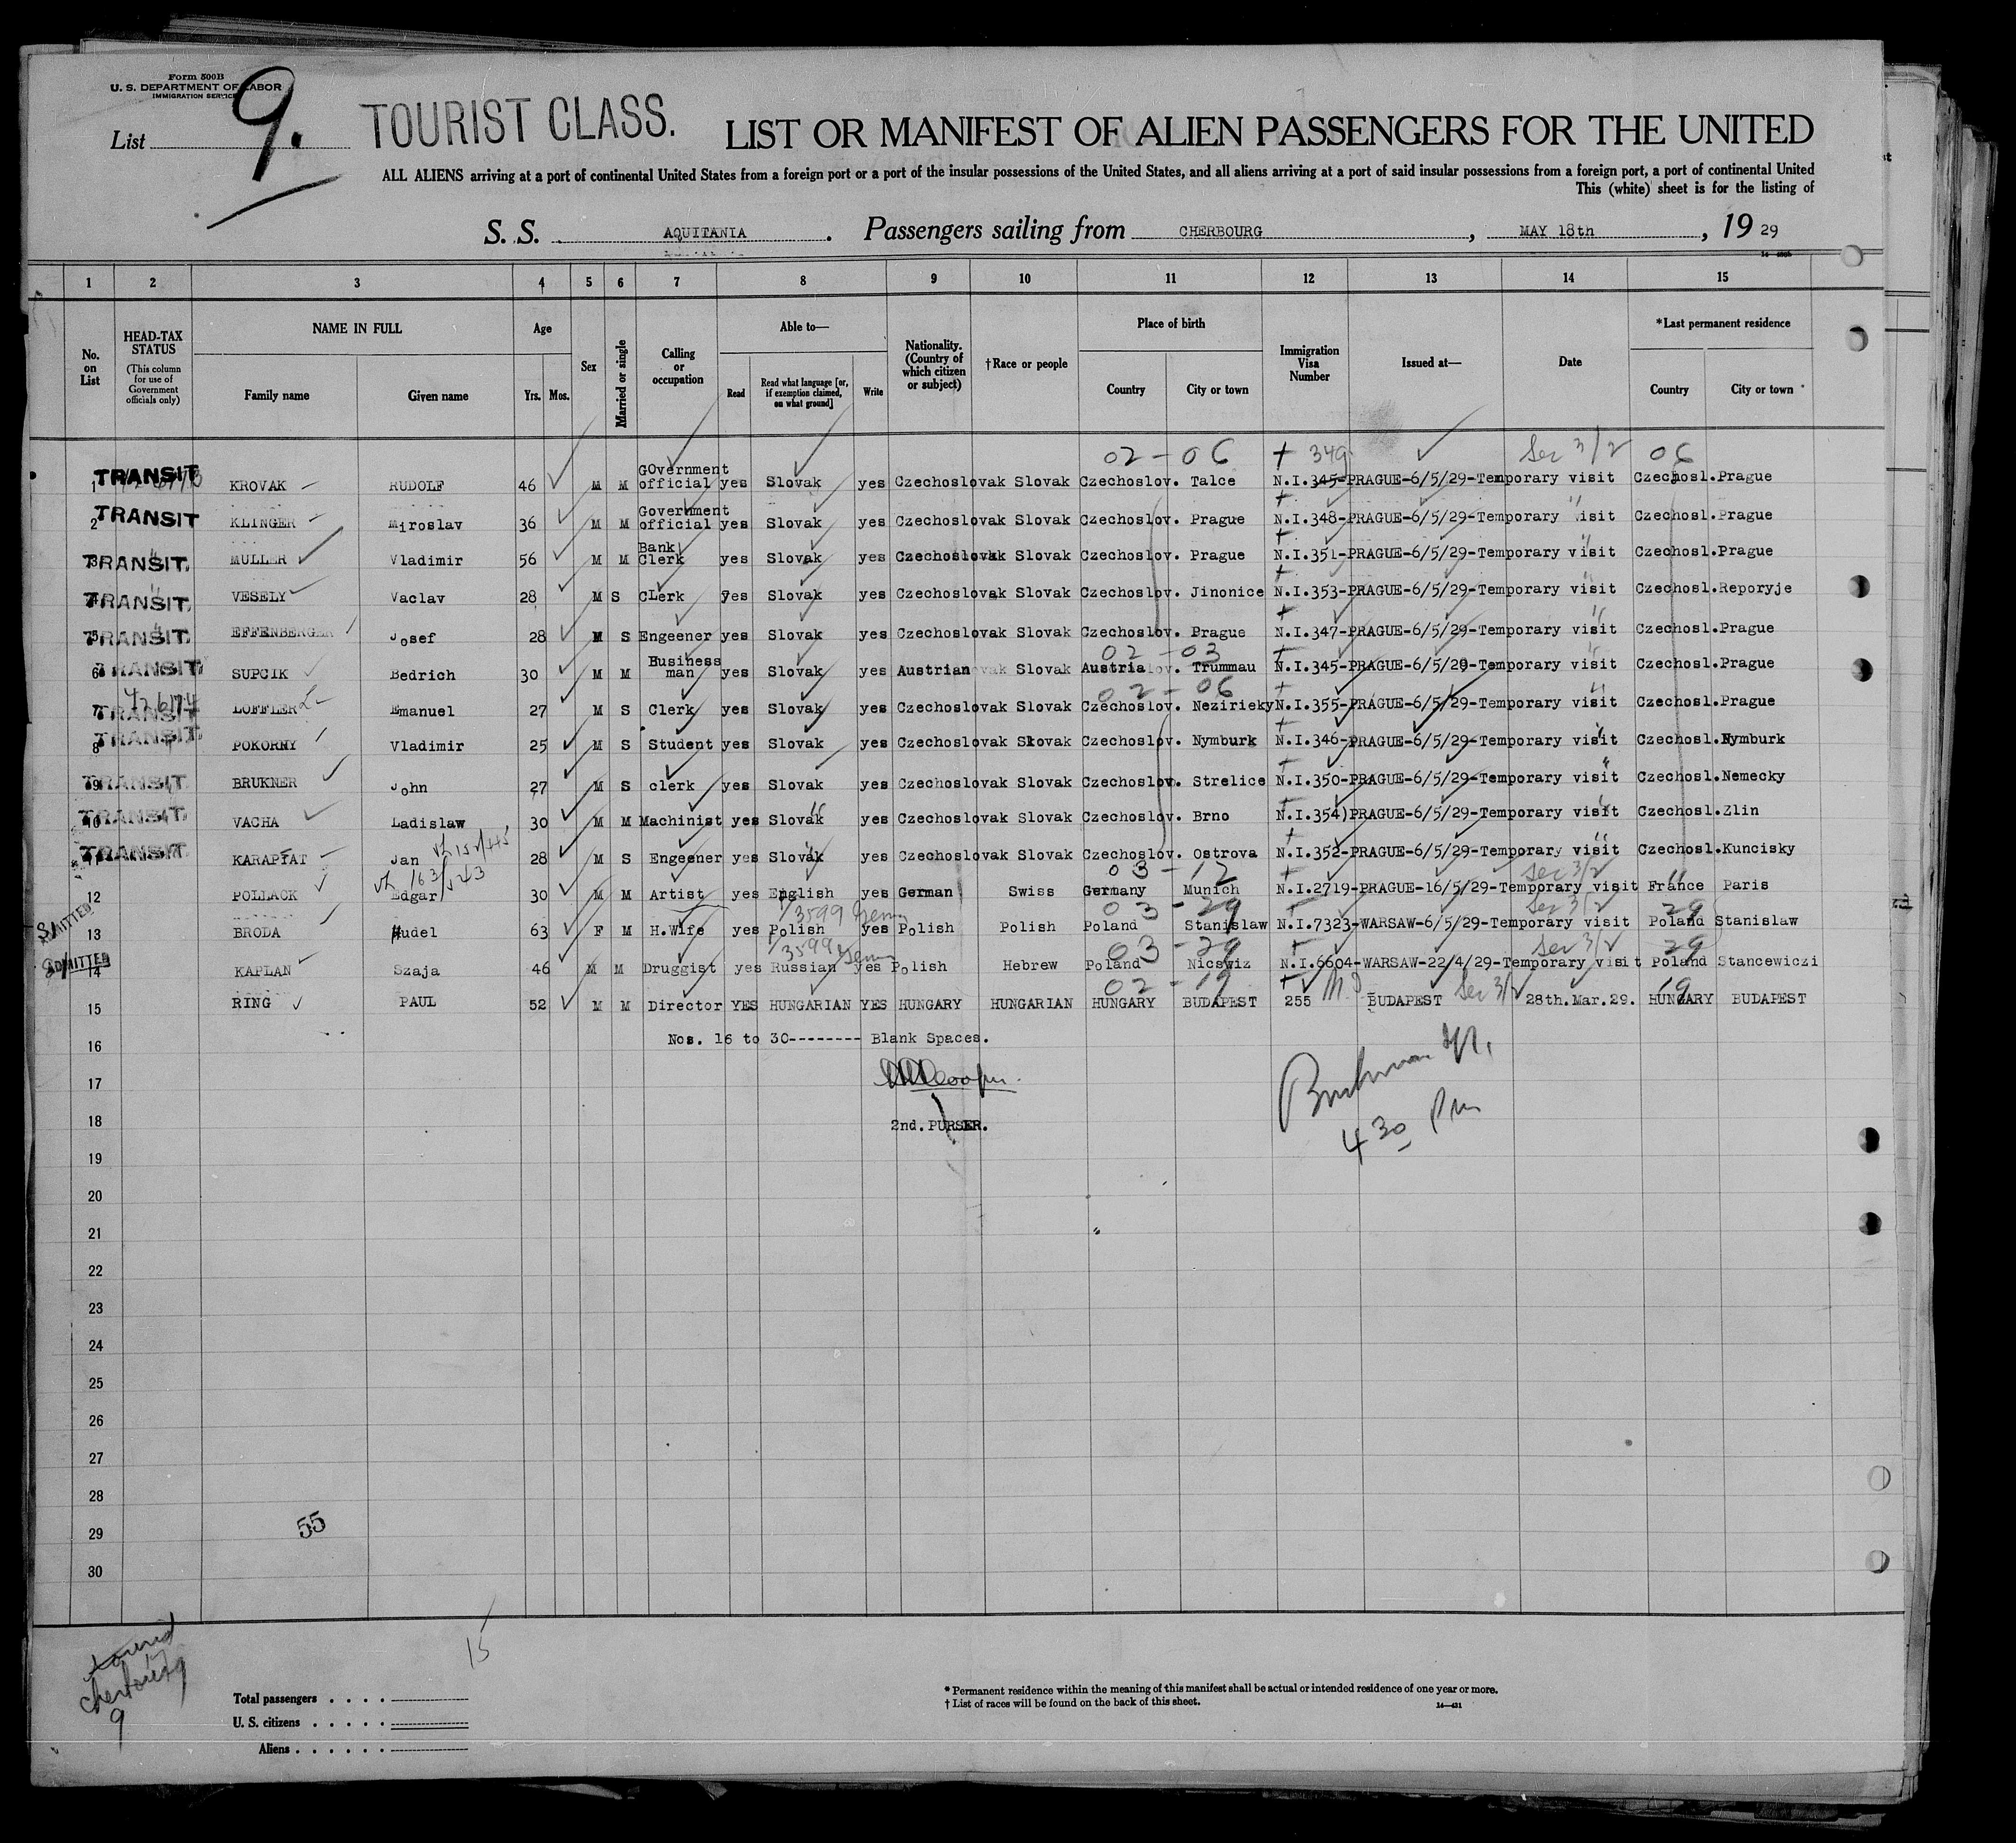 Form 500B
U. S. DEPARTMENT OF LABOR
IMMIGRATION SERVICE
List 9.
TOURIST CLASS.
LIST OR MANIFEST OF ALIEN PASSENGERS FOR THE UNITED
ALL ALIENS arriving at a port of continental United States from a foreign port or a port of the insular possessions of the United States, and all aliens arriving at a port of said insular possessions from a foreign port, a port of continental United
This (white) sheet is for the listing of
S. S. AQUITANIA. Passengers sailing from CHERBOURG, MAY 18th, 19 29
1 2 3 4 5 6 7 8 9 10 11 12 13 14 15
No. on List
HEAD-TAX STATUS (This column for use of Government officials only)
NAME IN FULL Family name Given name
Age Yrs. Mos.
Sex
Married or single
Calling or occupation
Able to— Read Read what language [or, if exemption claimed, on what ground] Write
Nationality. (Country of which citizen or subject)
†Race or people
Place of birth Country City or town
Immigration Visa Number
Issued at—
Date
*Last permanent residence Country City or town
02-06 349 Sec 3/2 06
1 TRANSIT KROVAK RUDOLF 46 M M GOvernment official yes Slovak yes Czechoslovak Slovak Czechoslov. Talce N.I.345-PRAGUE-6/5/29-Temporary visit Czechosl.Prague
2 TRANSIT KLINGER Miroslav 36 M M Government official yes Slovak yes Czechoslovak Slovak Czechoslov. Prague N.I.348-PRAGUE-6/5/29-Temporary visit Czechosl.Prague
3 TRANSIT. MULLER Vladimir 56 M M Bank Clerk yes Slovak yes Czechoslovak Slovak Czechoslov. Prague N.I.351-PRAGUE-6/5/29-Temporary visit Czechosl.Prague
4 TRANSIT. VESELY Vaclav 28 M S CLerk yes Slovak yes Czechoslovak Slovak Czechoslov. Jinonice N.I.353-PRAGUE-6/5/29-Temporary visit Czechosl.Reporyje
5 TRANSIT. EFFENBERGER Josef 28 M S Engeener yes Slovak yes Czechoslovak Slovak Czechoslov. Prague N.I.347-PRAGUE-6/5/29-Temporary visit Czechosl.Prague
02-03
6 TRANSIT SUPCIK Bedrich 30 M M Business man yes Slovak yes Austrian Slovak Austria Trummau N.I.345-PRAGUE-6/5/29-Temporary visit Czechosl.Prague
02-06
7 TRANSIT LOFFLER Emanuel 27 M S Clerk yes Slovak yes Czechoslovak Slovak Czechoslov. Nezirieky N.I.355-PRAGUE-6/5/29-Temporary visit Czechosl.Prague
8 TRANSIT. POKORNY Vladimir 25 M S Student yes Slovak yes Czechoslovak Slovak Czechoslov. Nymburk N.I.346-PRAGUE-6/5/29-Temporary visit Czechosl.Nymburk
9 TRANSIT. BRUKNER John 27 M S clerk yes Slovak yes Czechoslovak Slovak Czechoslov. Strelice N.I.350-PRAGUE-6/5/29-Temporary visit Czechosl.Nemecky
10 TRANSIT. VACHA Ladislaw 30 M M Machinist yes Slovak yes Czechoslovak Slovak Czechoslov. Brno N.I.354)PRAGUE-6/5/29-Temporary visit Czechosl.Zlin
11 TRANSIT. KARAPIAT Jan 28 M S Engeener yes Slovak yes Czechoslovak Slovak Czechoslov. Ostrova N.I.352-PRAGUE-6/5/29-Temporary visit Czechosl.Kuncisky
03-12 Sec 3/2
12 POLLACK Edgar 30 M M Artist yes English yes German Swiss Germany Munich N.I.2719-PRAGUE-16/5/29-Temporary visit France Paris
03-29 Sec 3/2 29
13 ADMITTED BRODA Hudel 63 F M H.Wife yes Polish yes Polish Polish Poland Stanislaw N.I.7323-WARSAW-6/5/29-Temporary visit Poland Stanislaw
03-29 Sec 3/2 29
14 ADMITTED KAPLAN Szaja 46 M M Druggist yes Russian yes Polish Hebrew Poland Nicswiz N.I.6604-WARSAW-22/4/29-Temporary visit Poland Stancewiczi
02-19 Sec 3/2 19
15 RING PAUL 52 M M Director YES HUNGARIAN YES HUNGARY HUNGARIAN HUNGARY BUDAPEST 255 BUDAPEST 28th.Mar.29. HUNGARY BUDAPEST
16 Nos. 16 to 30-------- Blank Spaces.
17
18 2nd. PURSER.
4 30 Pm
19
20
21
22
23
24
25
26
27
28
29 55
30
15
Cherbourg
9
Total passengers . . . .
U. S. citizens . . . . .
Aliens . . . . . .
* Permanent residence within the meaning of this manifest shall be actual or intended residence of one year or more.
† List of races will be found on the back of this sheet.
14—431